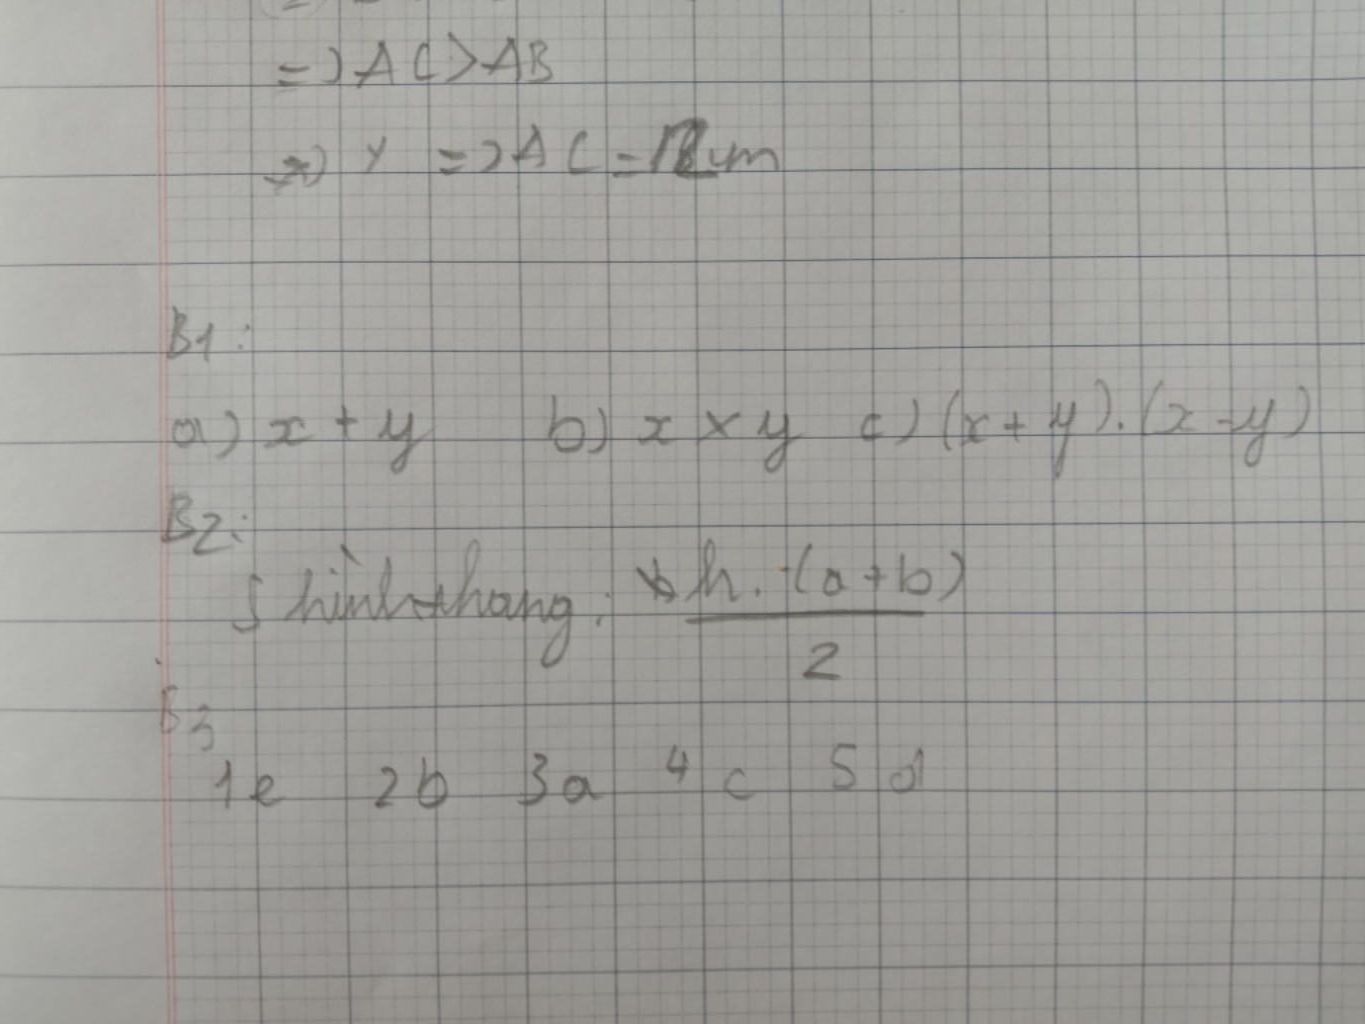 => AC > AB
=> AC = cm
B1:
a) x + y b) x × y c) (x + y).(x - y)
B2:
S hình thang: h.(a + b)
2
B3
1e 2b 3a 4c 5d